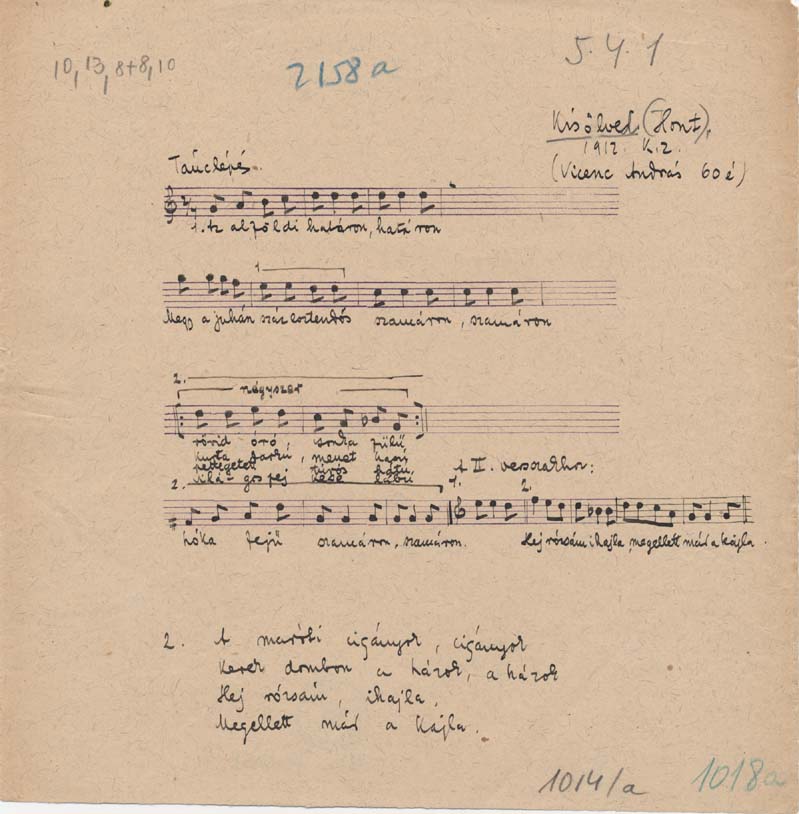 10, 13, 8+8, 10
2158a
5.4.1
Kisölved. (Hont),
1912. K.Z.
(Vicenc András 60 é)
Tánclépés.
1. Az alföldi határon, határon
1
Megy a juhán száz esztendős szamáron, szamáron
2.
négyszer
rövid óró, sonka fülü,
kurta farkú, menet
pettegetet túrós hátú,
vilá-gos fej kese lábú
A II. versszakhoz:
2. 1. 2.
hóka fejü szamáron, szamáron. Hej rózsám ihajla, megellett már a kajla.
2. A maróti cigányok, cigányok
Kerek dombon a házok, a házok
Hej rózsám, ihajla,
Megellett már a kajla.
1014/a
1018a